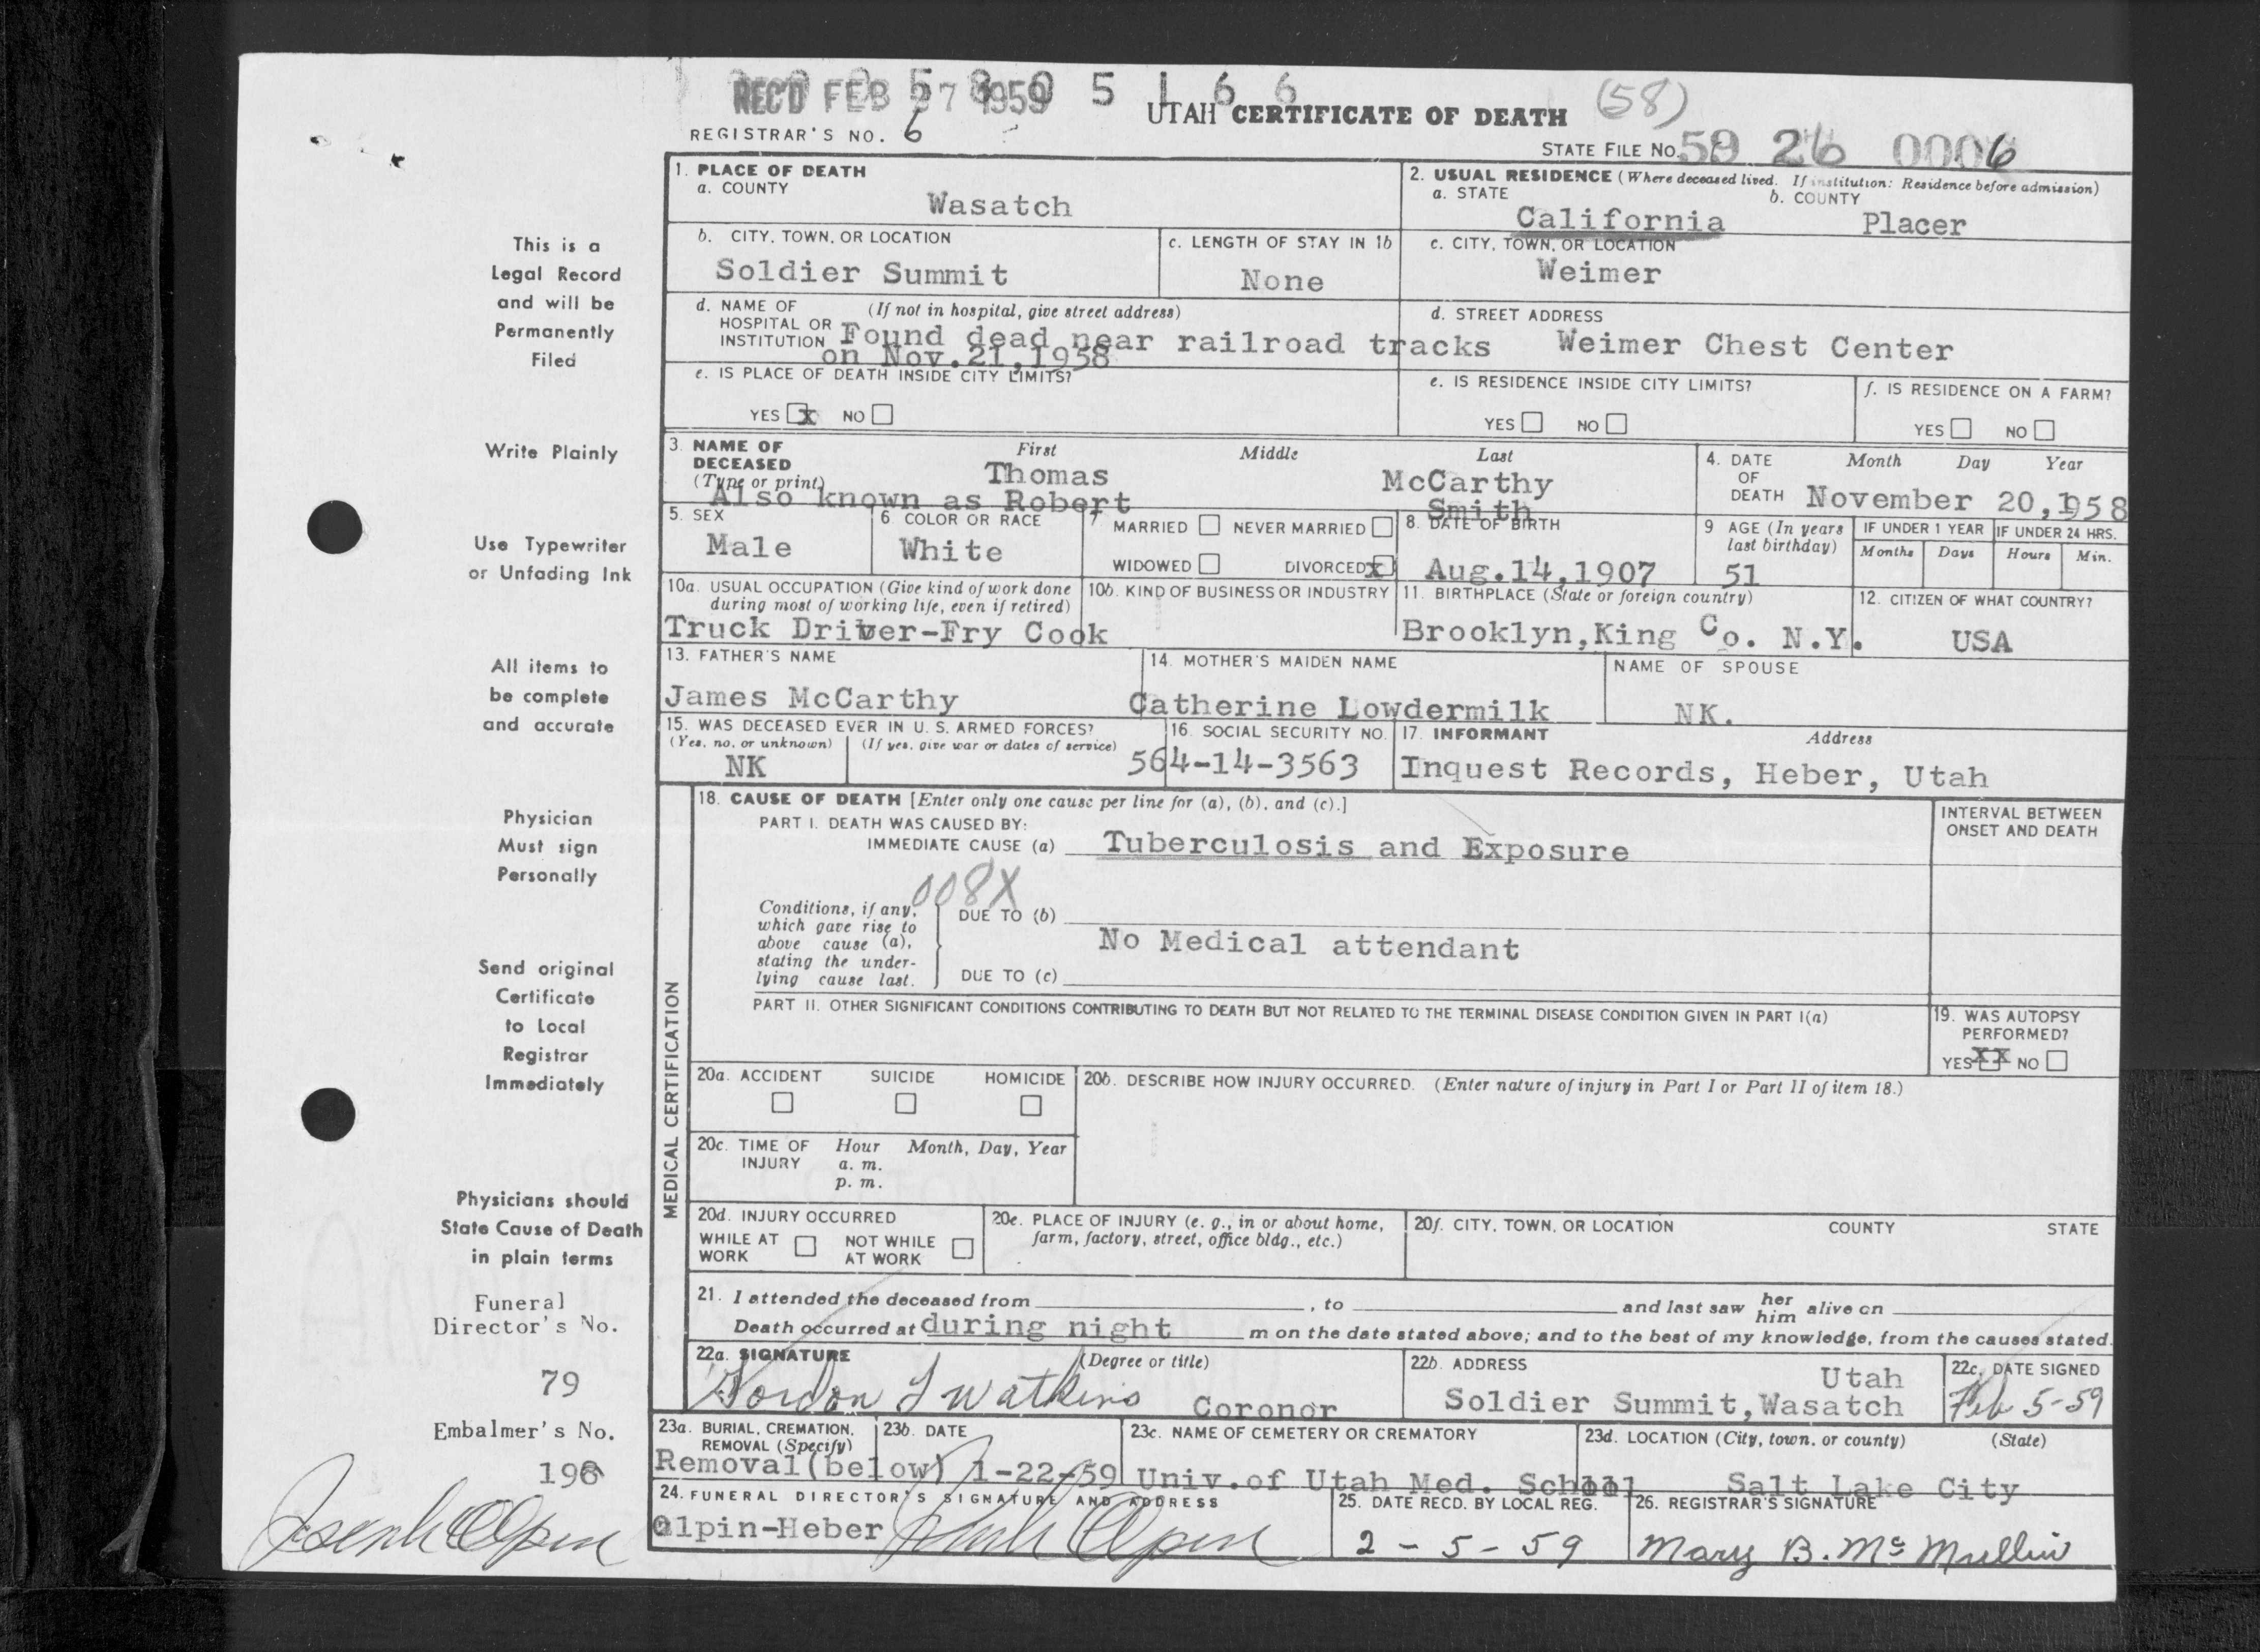 REC'D FEB 27 1959
UTAH CERTIFICATE OF DEATH (58)
REGISTRAR'S NO. 6
STATE FILE NO. 59 26 0006
1. PLACE OF DEATH
a. COUNTY
Wasatch
2. USUAL RESIDENCE (Where deceased lived. If institution: Residence before admission)
a. STATE b. COUNTY
California Placer
b. CITY, TOWN, OR LOCATION
Soldier Summit
c. LENGTH OF STAY IN 1b
None
c. CITY, TOWN, OR LOCATION
Weimer
d. NAME OF (If not in hospital, give street address)
HOSPITAL OR
INSTITUTION Found dead near railroad tracks
on Nov.21,1958
d. STREET ADDRESS
Weimer Chest Center
e. IS PLACE OF DEATH INSIDE CITY LIMITS?
YES x NO
e. IS RESIDENCE INSIDE CITY LIMITS?
YES NO
f. IS RESIDENCE ON A FARM?
YES NO
3. NAME OF First Middle Last
DECEASED
(Type or print) Thomas McCarthy
Also known as Robert Smith
4. DATE Month Day Year
OF
DEATH November 20,1958
5. SEX
Male
6. COLOR OR RACE
White
7. MARRIED NEVER MARRIED
WIDOWED DIVORCED x
8. DATE OF BIRTH
Aug.14,1907
9 AGE (In years
last birthday)
51
IF UNDER 1 YEAR IF UNDER 24 HRS.
Months Days Hours Min.
10a. USUAL OCCUPATION (Give kind of work done
during most of working life, even if retired)
Truck Driver-Fry Cook
10b. KIND OF BUSINESS OR INDUSTRY
11. BIRTHPLACE (State or foreign country)
Brooklyn,King Co. N.Y.
12. CITIZEN OF WHAT COUNTRY?
USA
13. FATHER'S NAME
James McCarthy
14. MOTHER'S MAIDEN NAME
Catherine Lowdermilk
NAME OF SPOUSE
NK.
15. WAS DECEASED EVER IN U. S. ARMED FORCES?
(Yes, no, or unknown) (If yes, give war or dates of service)
NK
16. SOCIAL SECURITY NO.
564-14-3563
17. INFORMANT Address
Inquest Records, Heber, Utah
MEDICAL CERTIFICATION
18. CAUSE OF DEATH [Enter only one cause per line for (a), (b), and (c).]
PART I. DEATH WAS CAUSED BY:
IMMEDIATE CAUSE (a) Tuberculosis and Exposure
INTERVAL BETWEEN
ONSET AND DEATH
008X
Conditions, if any,
which gave rise to
above cause (a),
stating the under-
lying cause last.
DUE TO (b)
No Medical attendant
DUE TO (c)
PART II. OTHER SIGNIFICANT CONDITIONS CONTRIBUTING TO DEATH BUT NOT RELATED TO THE TERMINAL DISEASE CONDITION GIVEN IN PART I(a)
19. WAS AUTOPSY
PERFORMED?
YES XX NO
20a. ACCIDENT SUICIDE HOMICIDE
20b. DESCRIBE HOW INJURY OCCURRED. (Enter nature of injury in Part I or Part II of item 18.)
20c. TIME OF Hour Month, Day, Year
INJURY a. m.
p. m.
20d. INJURY OCCURRED
WHILE AT NOT WHILE
WORK AT WORK
20e. PLACE OF INJURY (e. g., in or about home,
farm, factory, street, office bldg., etc.)
20f. CITY, TOWN, OR LOCATION COUNTY STATE
21. I attended the deceased from , to and last saw her him alive on
Death occurred at during night m on the date stated above; and to the best of my knowledge, from the causes stated.
22a. SIGNATURE (Degree or title)
Gordon L Watkins Coronor
22b. ADDRESS
Utah
Soldier Summit,Wasatch
22c. DATE SIGNED
Feb 5-59
23a. BURIAL, CREMATION,
REMOVAL (Specify)
Removal(below)
23b. DATE
1-22-59
23c. NAME OF CEMETERY OR CREMATORY
Univ.of Utah Med. School
23d. LOCATION (City, town, or county) (State)
Salt Lake City
24. FUNERAL DIRECTOR'S SIGNATURE AND ADDRESS
Olpin-Heber Joseph Olpin
25. DATE RECD. BY LOCAL REG.
2 - 5 - 59
26. REGISTRAR'S SIGNATURE
Mary B. McMullin
This is a
Legal Record
and will be
Permanently
Filed
Write Plainly
Use Typewriter
or Unfading Ink
All items to
be complete
and accurate
Physician
Must sign
Personally
Send original
Certificate
to Local
Registrar
Immediately
Physicians should
State Cause of Death
in plain terms
Funeral
Director's No.
79
Embalmer's No.
Joseph Olpin